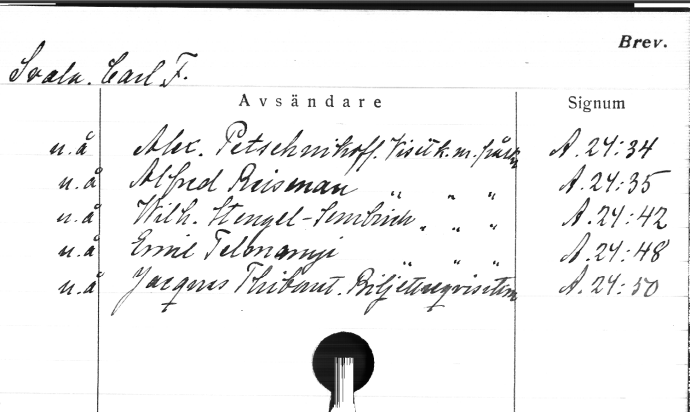 Brev.
Svala. Carl F.
Avsändare Signum
u.å Alex. Petschnikoff. Visitk. m. påskr. A. 24:34
u.å Alfred Reisenau " " " A. 24:35
u.å Wilh. Stengel-Sembrich " " " A. 24:42
u.å Emil Telmanyi " " " A. 24:48
u.å Jacques Thibaut. Biljettreqvisition A. 24:50